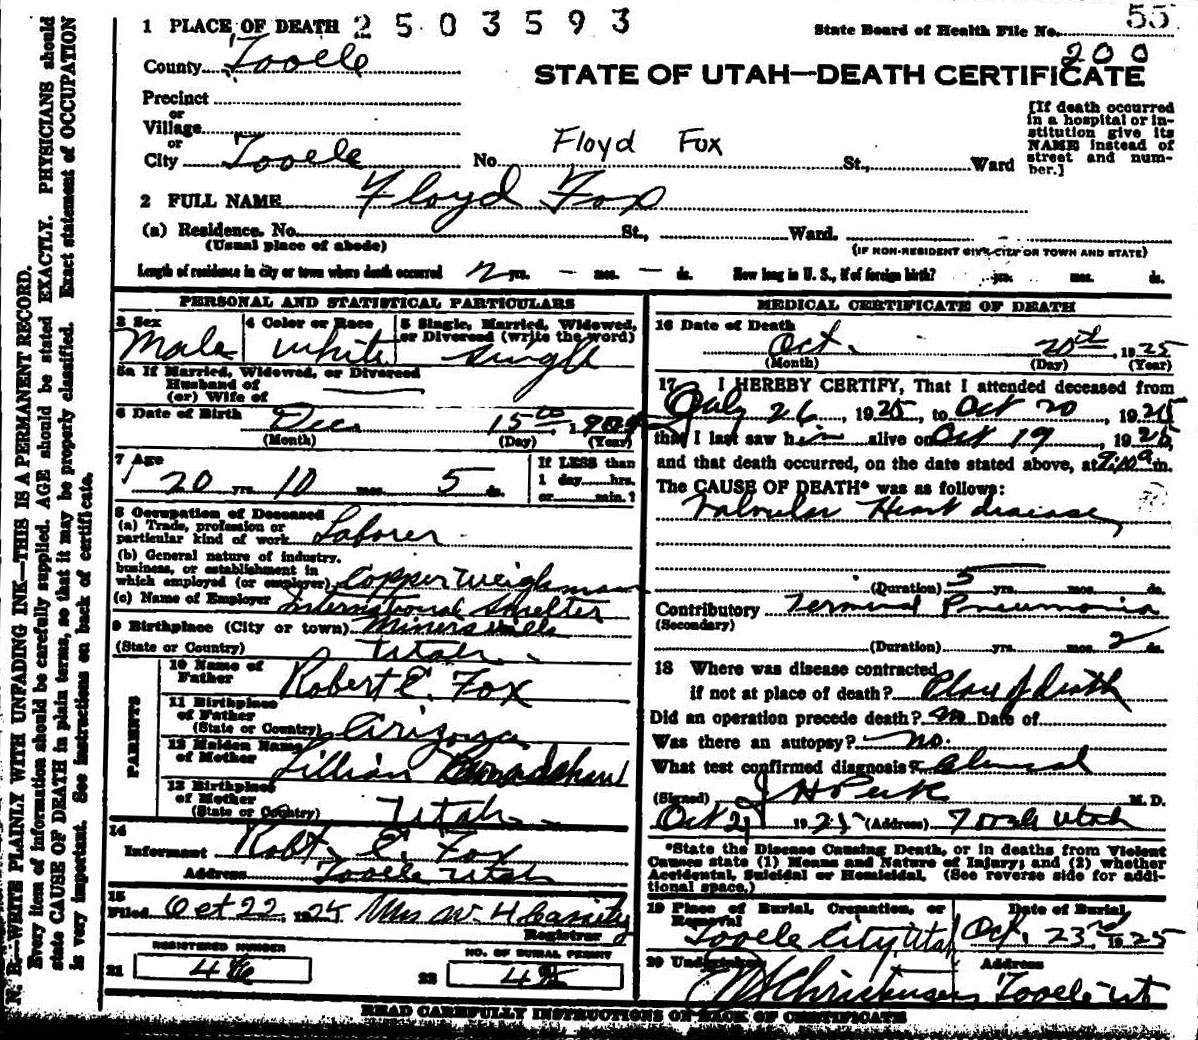 1 PLACE OF DEATH 2503593
State Board of Health File No. 55
200
County Tooele
STATE OF UTAH—DEATH CERTIFICATE
Precinct
or
Village
or
City Tooele No. Floyd Fox St., Ward
[If death occurred in a hospital or institution give its NAME instead of street and number.]
2 FULL NAME Floyd Fox
(a) Residence. No. St., Ward.
(Usual place of abode) (IF NON-RESIDENT GIVE CITY OR TOWN AND STATE)
Length of residence in city or town where death occurred 2 yrs. — mos. — ds. How long in U. S., if of foreign birth? yrs. mos. ds.
PERSONAL AND STATISTICAL PARTICULARS
3 Sex Male
4 Color or Race White
5 Single, Married, Widowed, or Divorced (write the word) Single
5a If Married, Widowed, or Divorced
Husband of
(or) Wife of
6 Date of Birth Dec 15th, 1904
(Month) (Day) (Year)
7 Age 20 yrs. 10 mos. 5 ds.
If LESS than
1 day......hrs.
or......min.?
8 Occupation of Deceased
(a) Trade, profession or
particular kind of work Laborer
(b) General nature of industry,
business, or establishment in
which employed (or employer) Copper Weighman
(c) Name of Employer International Smelter
9 Birthplace (City or town) Minersville
(State or Country) Utah
PARENTS
10 Name of
Father Robert E. Fox
11 Birthplace
of Father
(State or Country) Arizona
12 Maiden Name
of Mother Lillian Bradshaw
13 Birthplace
of Mother
(State or Country) Utah
14
Informant Robt. E. Fox
Address Tooele Utah
15
Filed Oct 22, 1925 Mrs W. H. Cassity
Registrar
REGISTERED NUMBER
21
NO. OF BURIAL PERMIT
22
MEDICAL CERTIFICATE OF DEATH
16 Date of Death
Oct. 20th, 1925
(Month) (Day) (Year)
17 I HEREBY CERTIFY, That I attended deceased from
July 26, 1925, to Oct 20, 1925
that I last saw him alive on Oct 19, 1925,
and that death occurred, on the date stated above, at 9:10 a m.
The CAUSE OF DEATH* was as follows:
Valvular Heart disease,
(Duration) 5 yrs. mos. ds.
Contributory Terminal Pneumonia
(Secondary)
(Duration) yrs. mos. 2 ds.
18 Where was disease contracted
if not at place of death? Place of death
Did an operation precede death? no Date of
Was there an autopsy? no.
What test confirmed diagnosis? Clinical
(Signed) J H Peck M. D.
Oct 21 1925 (Address) Tooele Utah
*State the Disease Causing Death, or in deaths from Violent
Causes state (1) Means and Nature of Injury; and (2) whether
Accidental, Suicidal or Homicidal. (See reverse side for addi-
tional space.)
19 Place of Burial, Cremation, or Removal Date of Burial
Tooele City Utah Oct. 23rd 1925
20 Undertaker Address
Christensen Tooele Ut
READ CAREFULLY INSTRUCTIONS ON BACK OF CERTIFICATE
N. B.—WRITE PLAINLY WITH UNFADING INK—THIS IS A PERMANENT RECORD.
Every item of information should be carefully supplied. AGE should be stated EXACTLY. PHYSICIANS should
state CAUSE OF DEATH in plain terms, so that it may be properly classified. Exact statement of OCCUPATION
is very important. See instructions on back of certificate.